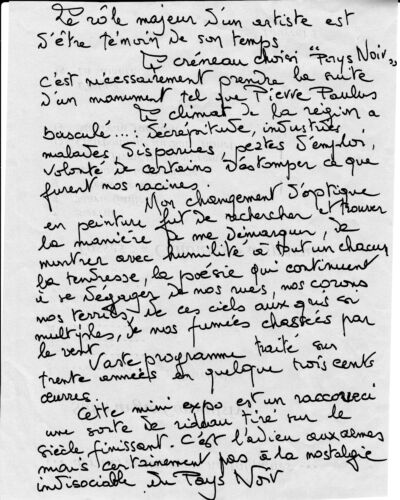 Le rôle majeur d'un artiste est
d'être témoin de son temps
Le créneau choisi "Pays Noir",
c'est nécessairement prendre la suite
d'un monument tel que Pierre Paulus
Le climat de la région a
basculé...: décrépitude, industries
malades, disparues, pertes d'emploi,
volonté de certains d'estomper ce que
furent nos racines
Mon changement d'optique
en peinture fut de rechercher et trouver
la manière de me démarquer, de
montrer avec humilité à tout un chacun
la tendresse, la poésie qui continuent
à se dégager de nos rues, nos corons
nos terrils, de ces ciels aux gris si
multiples, de nos fumées chassées par
le vent.
Vaste programme traité sur
trente années en quelque trois cents
œuvres.
Cette mini expo est un raccourci
une sorte de rideau tiré sur le
siècle finissant. C'est l'adieu aux armes
mais certainement pas à la nostalgie
indisociable du Pays Noir